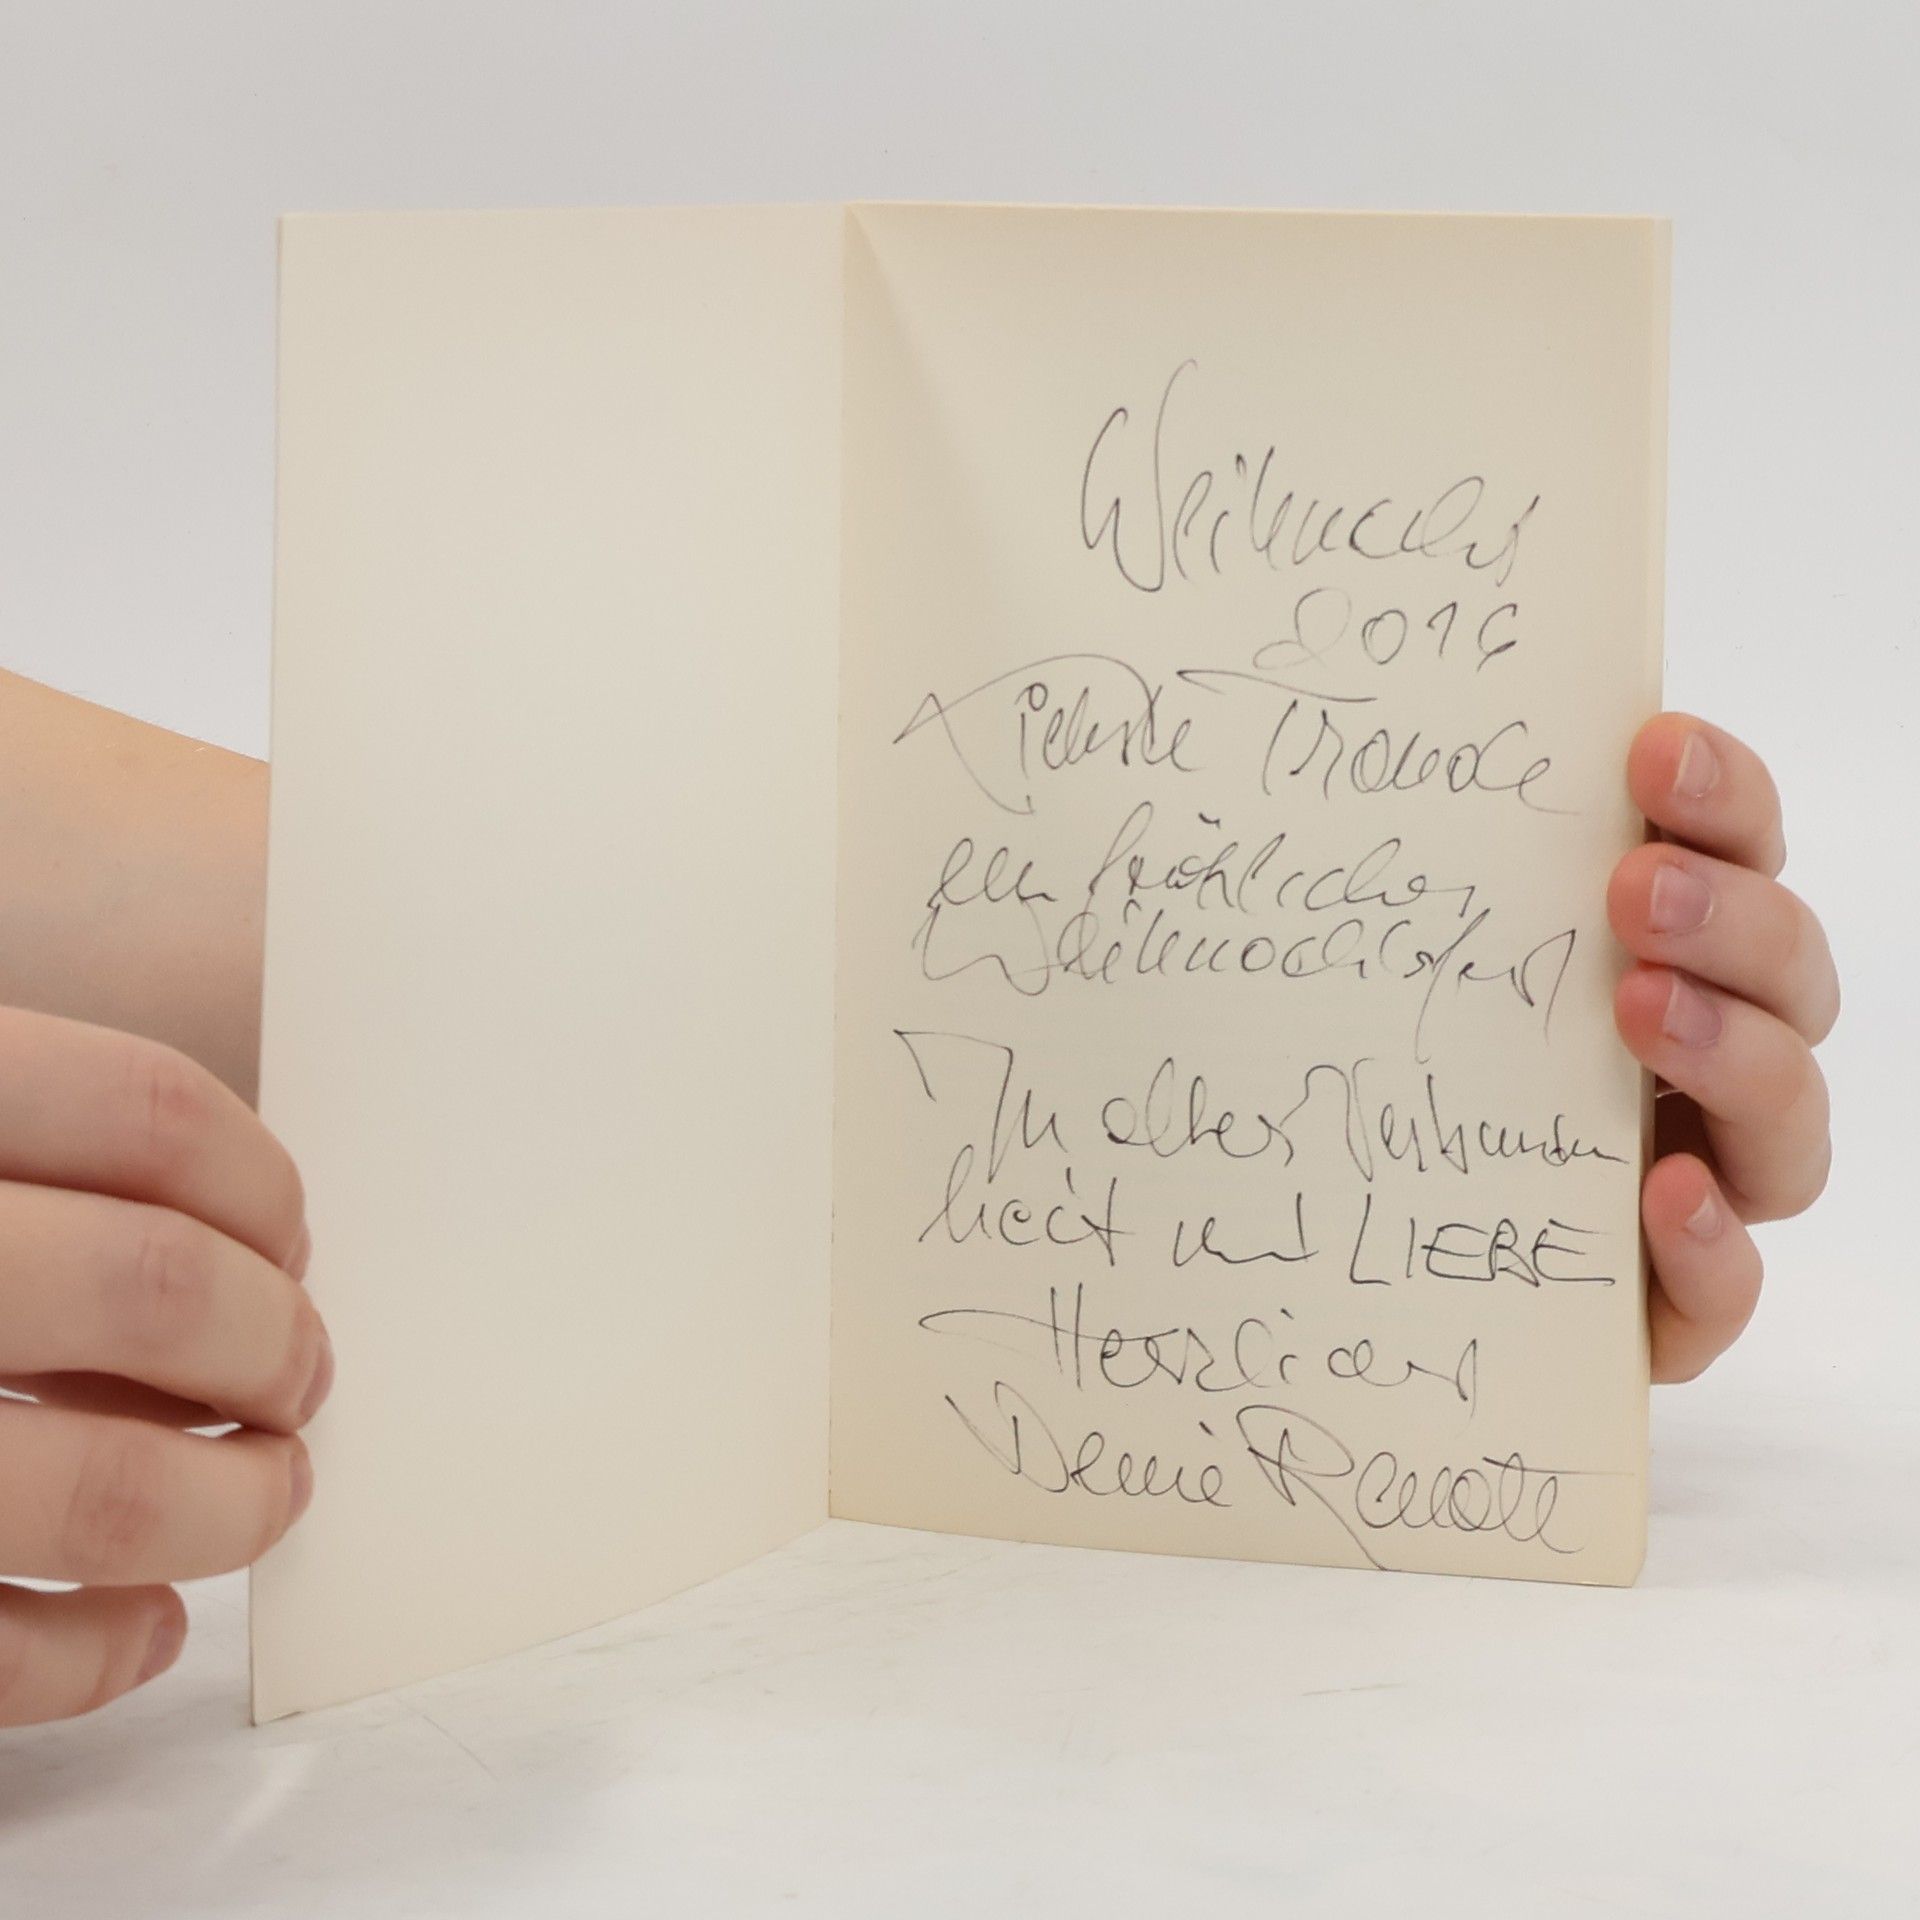 Weihnacht
2016
Liebste Traude
ein fröhliches
Weihnachtsfest
In alter Verbunden
heit und LIEBE
Herzlichst
Deine Renate